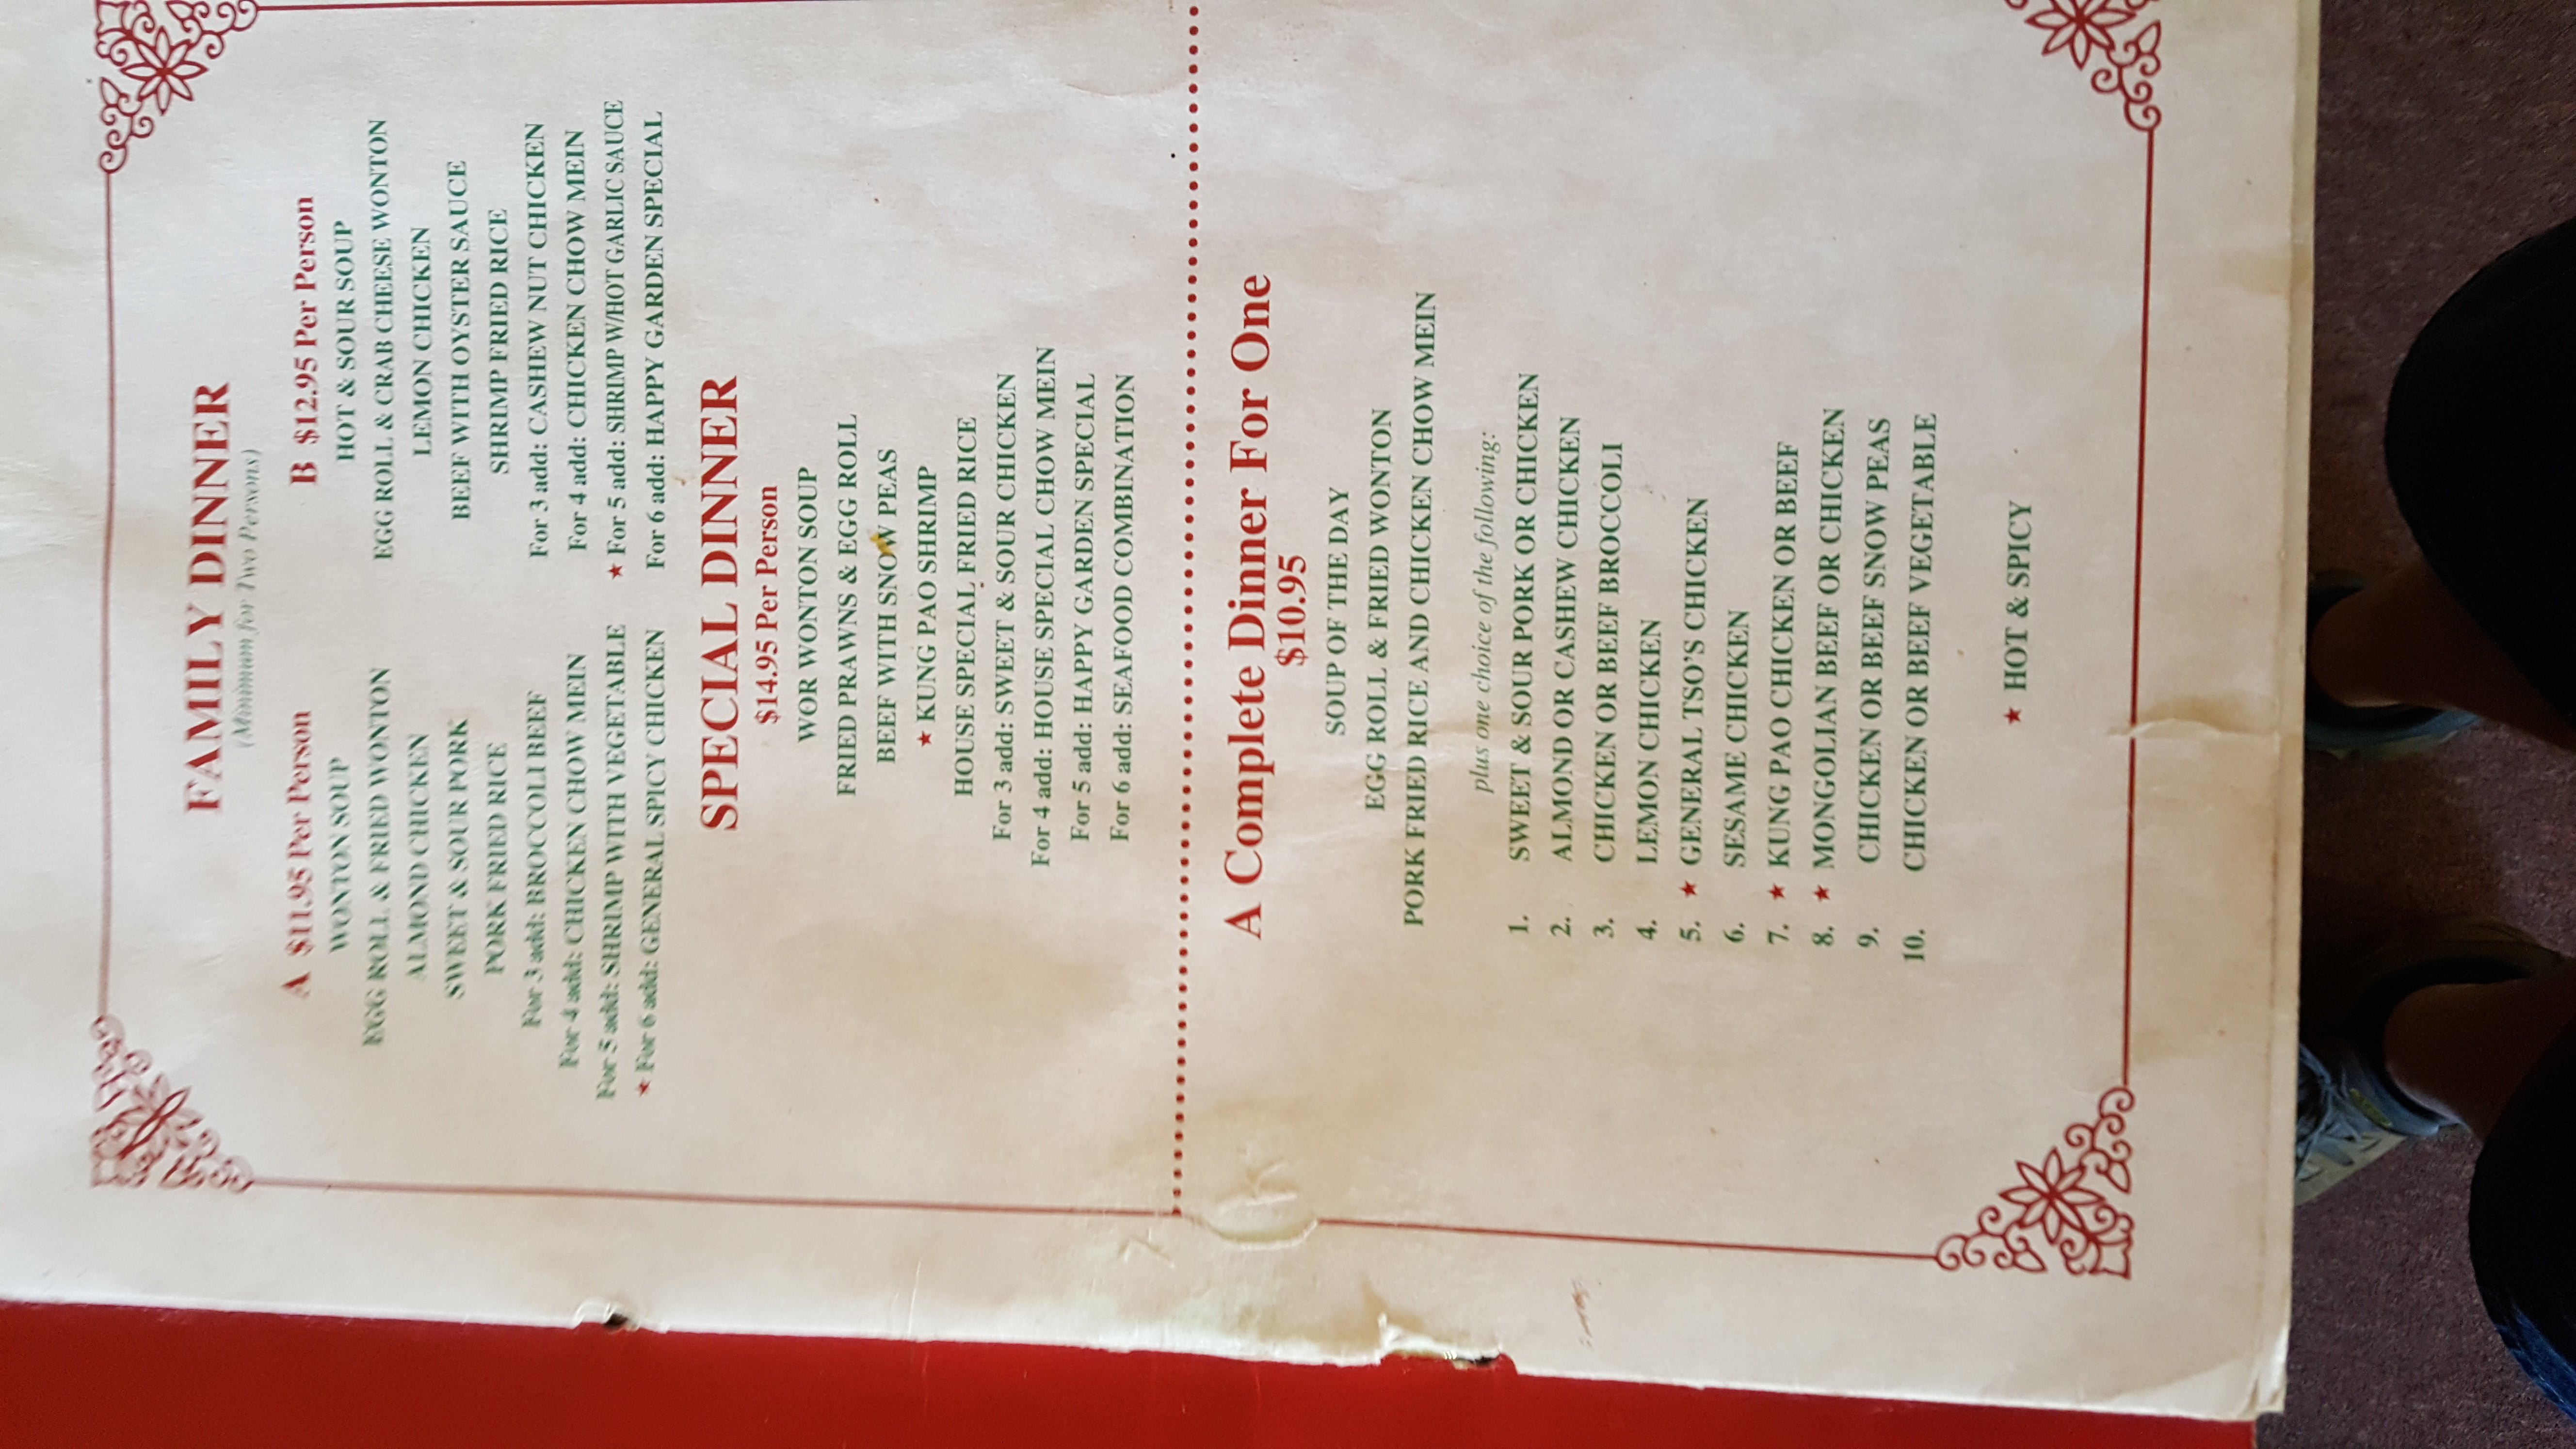 FAMILY DINNER
(Minimum for Two Persons)
A $11.95 Per Person
WONTON SOUP
EGG ROLL & FRIED WONTON
ALMOND CHICKEN
SWEET & SOUR PORK
PORK FRIED RICE
For 3 add: BROCCOLI BEEF
For 4 add: CHICKEN CHOW MEIN
For 5 add: SHRIMP WITH VEGETABLE
★ For 6 add: GENERAL SPICY CHICKEN
B $12.95 Per Person
HOT & SOUR SOUP
EGG ROLL & CRAB CHEESE WONTON
LEMON CHICKEN
BEEF WITH OYSTER SAUCE
SHRIMP FRIED RICE
For 3 add: CASHEW NUT CHICKEN
For 4 add: CHICKEN CHOW MEIN
★ For 5 add: SHRIMP W/HOT GARLIC SAUCE
For 6 add: HAPPY GARDEN SPECIAL
SPECIAL DINNER
$14.95 Per Person
WOR WONTON SOUP
FRIED PRAWNS & EGG ROLL
BEEF WITH SNOW PEAS
★ KUNG PAO SHRIMP
HOUSE SPECIAL FRIED RICE
For 3 add: SWEET & SOUR CHICKEN
For 4 add: HOUSE SPECIAL CHOW MEIN
For 5 add: HAPPY GARDEN SPECIAL
For 6 add: SEAFOOD COMBINATION
A Complete Dinner For One
$10.95
SOUP OF THE DAY
EGG ROLL & FRIED WONTON
PORK FRIED RICE AND CHICKEN CHOW MEIN
plus one choice of the following:
1. SWEET & SOUR PORK OR CHICKEN
2. ALMOND OR CASHEW CHICKEN
3. CHICKEN OR BEEF BROCCOLI
4. LEMON CHICKEN
5. ★ GENERAL TSO'S CHICKEN
6. SESAME CHICKEN
7. ★ KUNG PAO CHICKEN OR BEEF
8. ★ MONGOLIAN BEEF OR CHICKEN
9. CHICKEN OR BEEF SNOW PEAS
10. CHICKEN OR BEEF VEGETABLE
★ HOT & SPICY